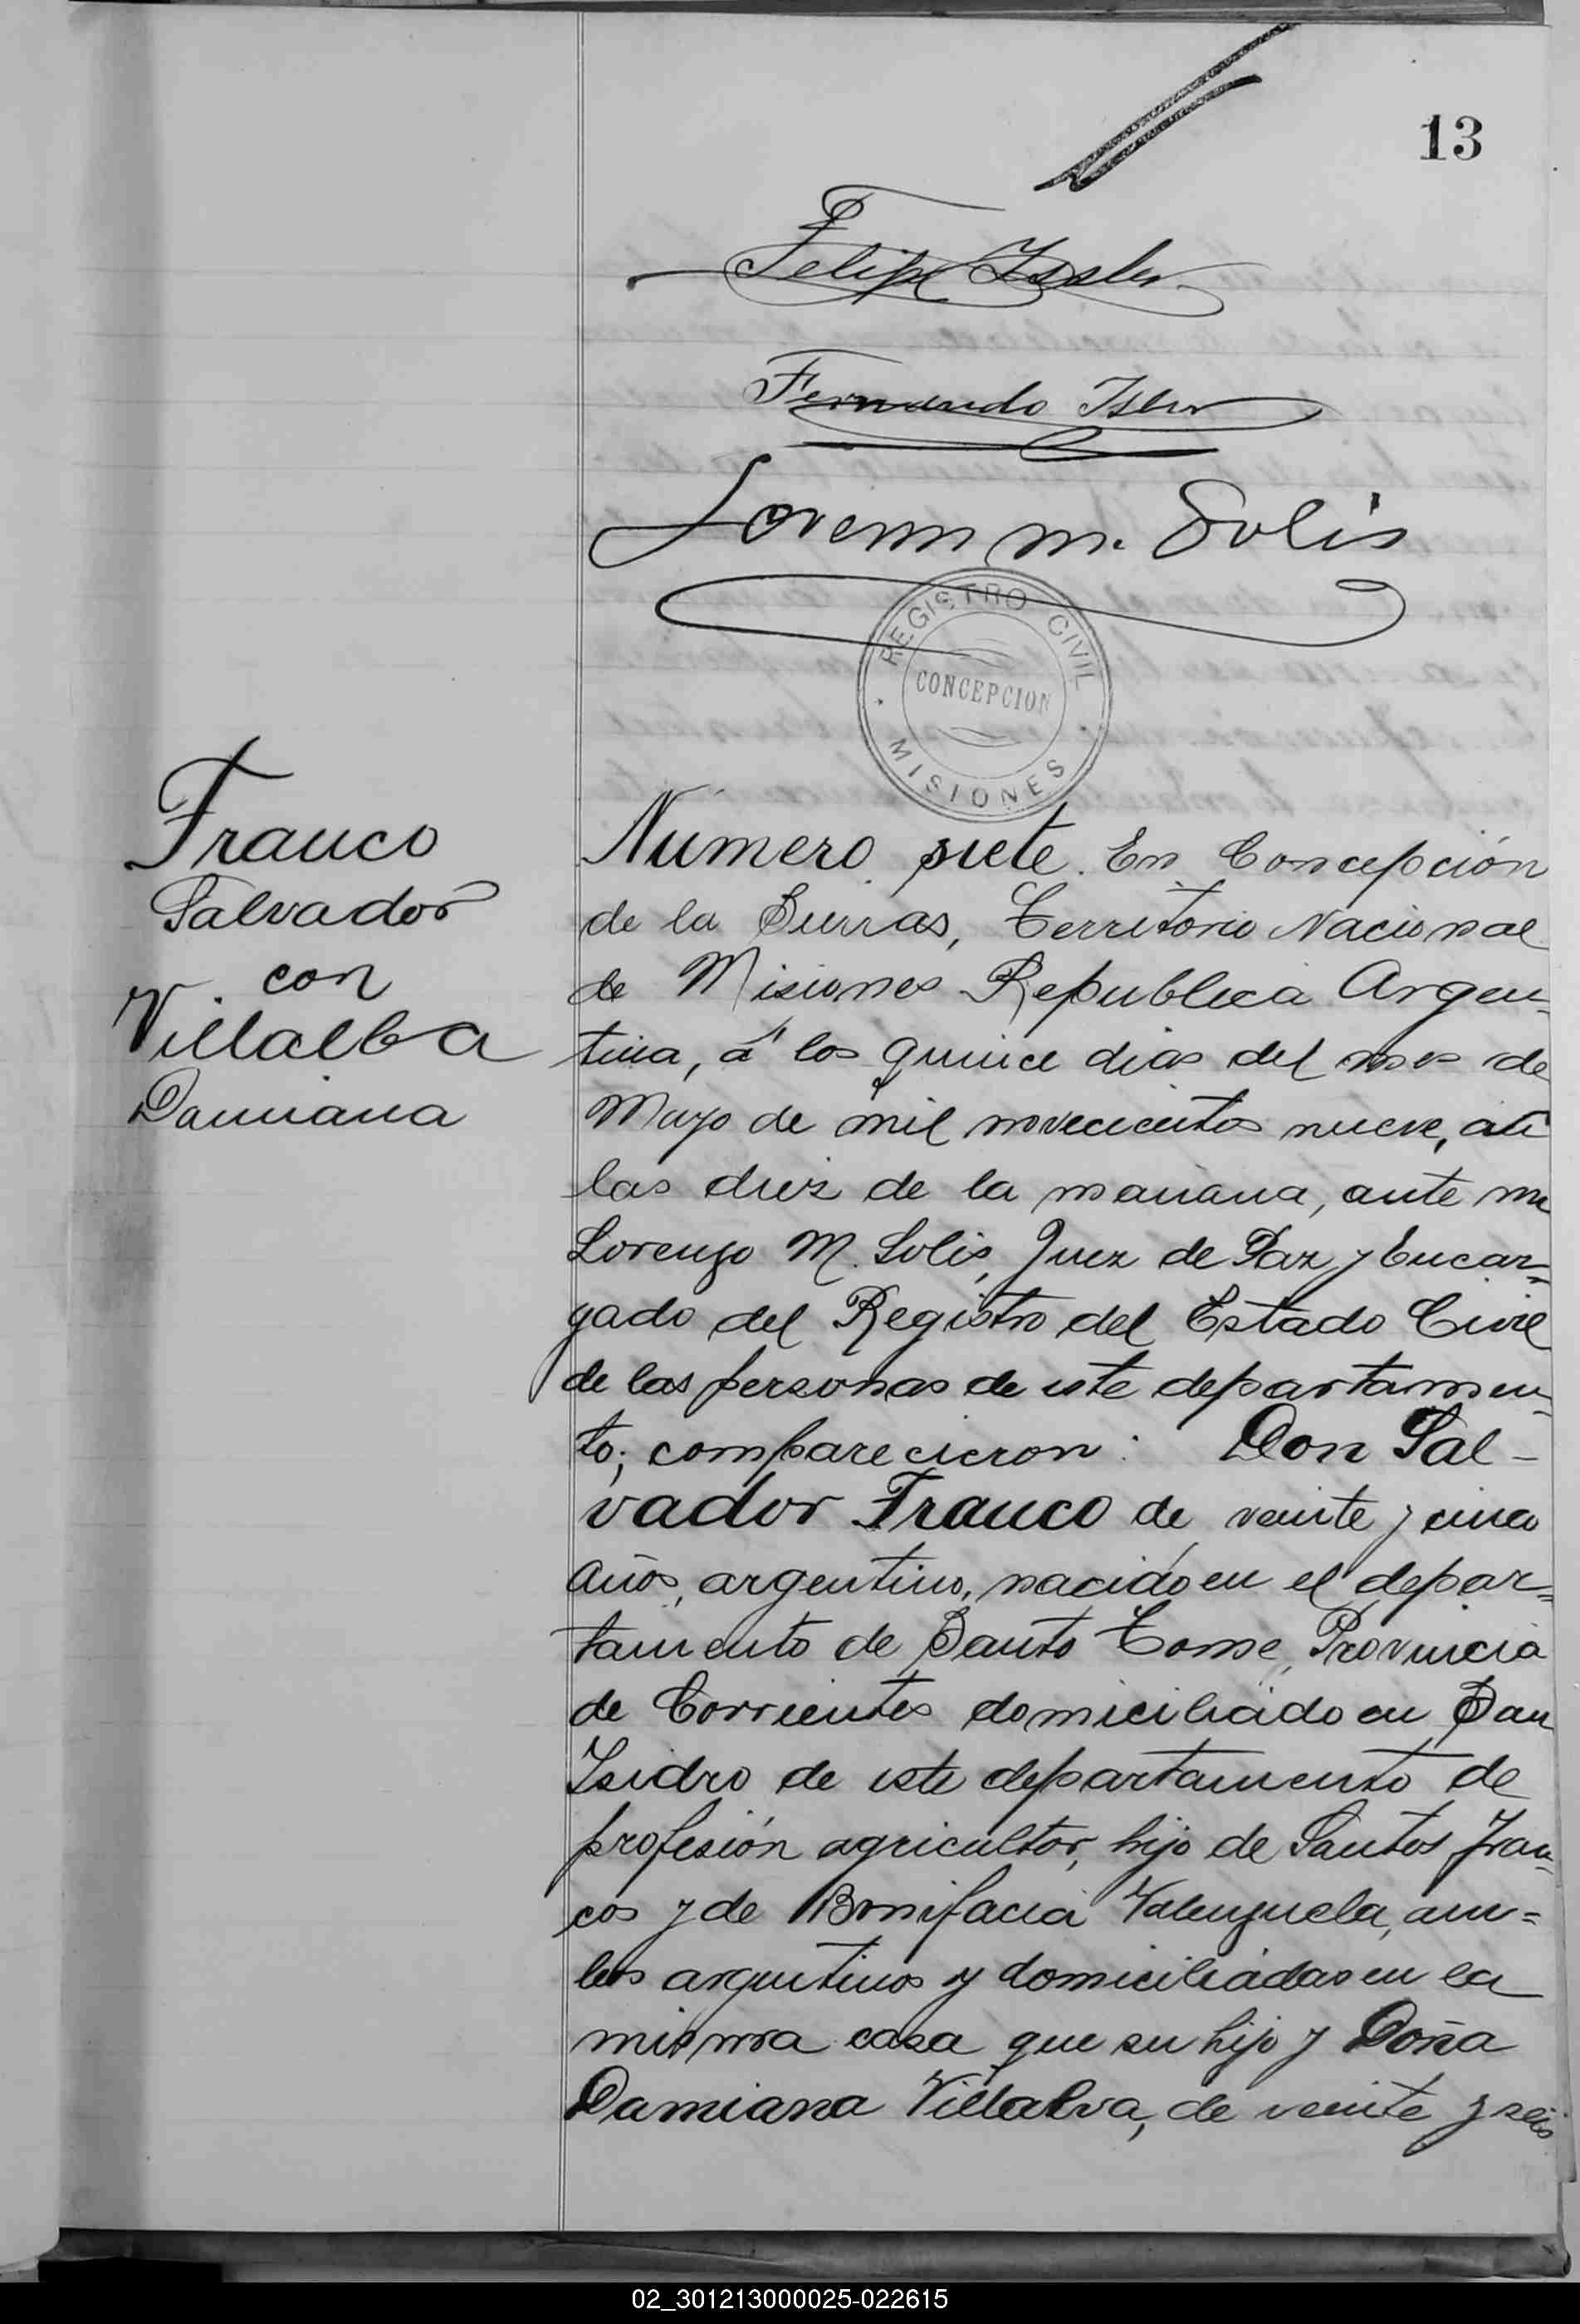 13
Felipe Issler
Fernando Isler
Lorenzo M. Solis
REGISTRO CIVIL
CONCEPCION
MISIONES
Franco
Salvador
con
Villalba
Damiana
Número siete. En Concepción
de la Sierras, Territorio Nacional
de Misiones Republica Argen-
tina, á los quince dias del mes de
Mayo de mil novecientos nueve, a
las diez de la mañana, ante mi
Lorenzo M. Solis, Juez de Paz y Encar=
gado del Registro del Estado Civil
de las personas de este departamen-
to; comparecieron: Don Sal-
vador Franco de veinte y cinco
años, argentino, nacido en el depar=
tamento de Santo Tome, Provincia
de Corrientes domiciliado en San
Isidro de este departamento de
profesión agricultor, hijo de Santos Fran-
cos y de Bonifacia Valenzuela, am=
bos argentinos y domiciliados en la
misma casa que su hijo y Doña
Damiana Villalva, de veinte y seis
02_301213000025-022615